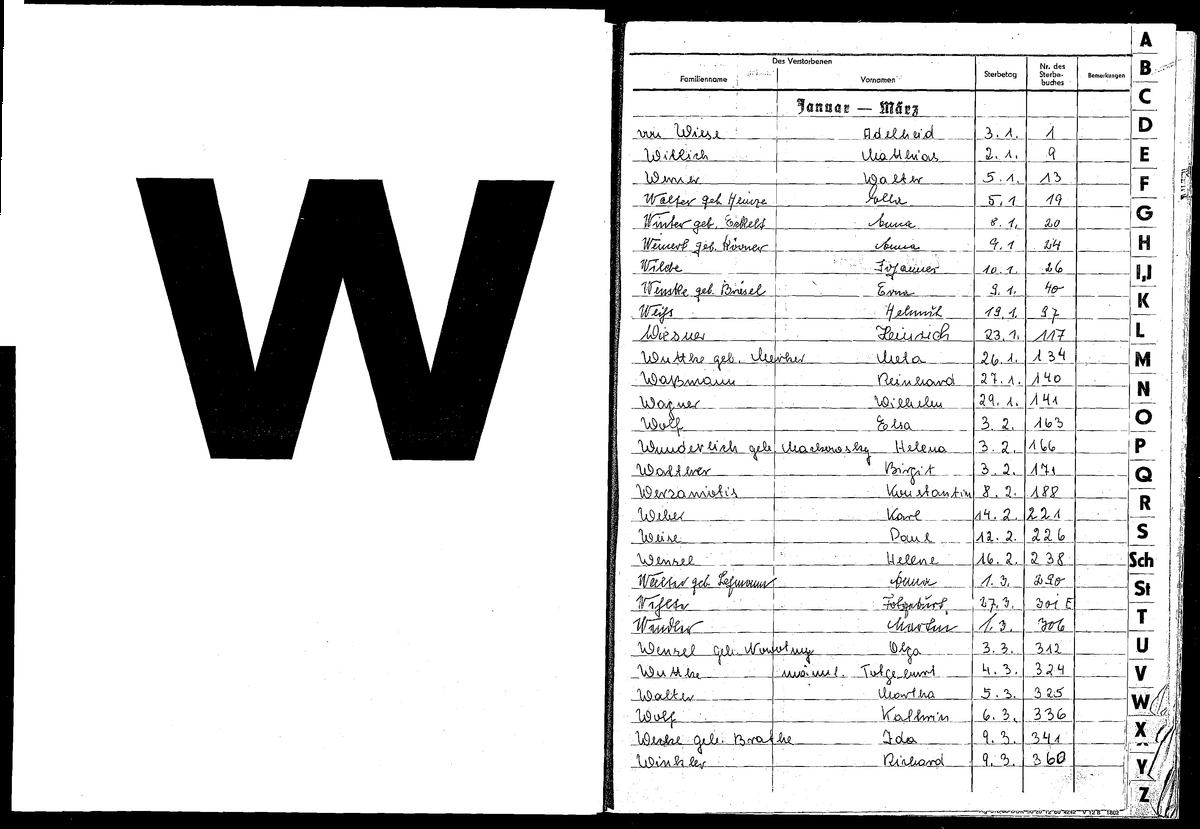 W
Des Verstorbenen
Familienname Vornamen Sterbetag Nr. des Sterbe-buches Bemerkungen
Januar — März
von Wiese Adelheid 3. 1. 1
Willich Matthias 2. 1. 9
Werner Walter 5. 1. 13
Walter geb. Heinze Ella 5. 1 19
Winter geb. Anna 8. 1. 20
Weinert geb. Anna 9. 1 24
Wilde 10. 1. 26
Wenske geb. Erna 9. 1. 40
Weiß Helmut 19. 1. 97
Wiesner Heinrich 23. 1. 117
Wuttke geb. Meta 26. 1. 134
Waßmann Reinhard 27. 1. 140
Wagner Wilhelm 29. 1. 141
Wolf Elsa 3. 2. 163
Wunderlich geb. Helena 3. 2. 166
Birgit 3. 2. 171
Konstantin 8. 2. 188
Weber Karl 14. 2. 221
Weise Paul 12. 2. 226
Wenzel Helene 16. 2. 238
geb. Anna 1. 3. 290
27. 3. 301 E
Wendler Martin 1. 3. 306
Wenzel geb. Nowotny Olga 3. 3. 312
Wuttke männl. Totgeburt 4. 3. 324
Walter Martha 5. 3. 325
Wolf Kathrin 6. 3. 336
geb. Brathe Ida 9. 3. 341
Winkler Richard 9. 3. 360
A
B
C
D
E
F
G
H
I,J
K
L
M
N
O
P
Q
R
S
Sch
St
T
U
V
W
X
Y
Z